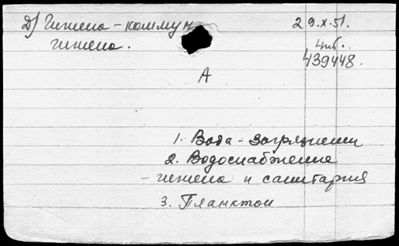 Д) Гигиена - коммун.
гигиена.
29.X.51.
439448.
А
1. Вода - загрязнении
2. Водоснабжение
- гигиена и санитария
3. Планктон